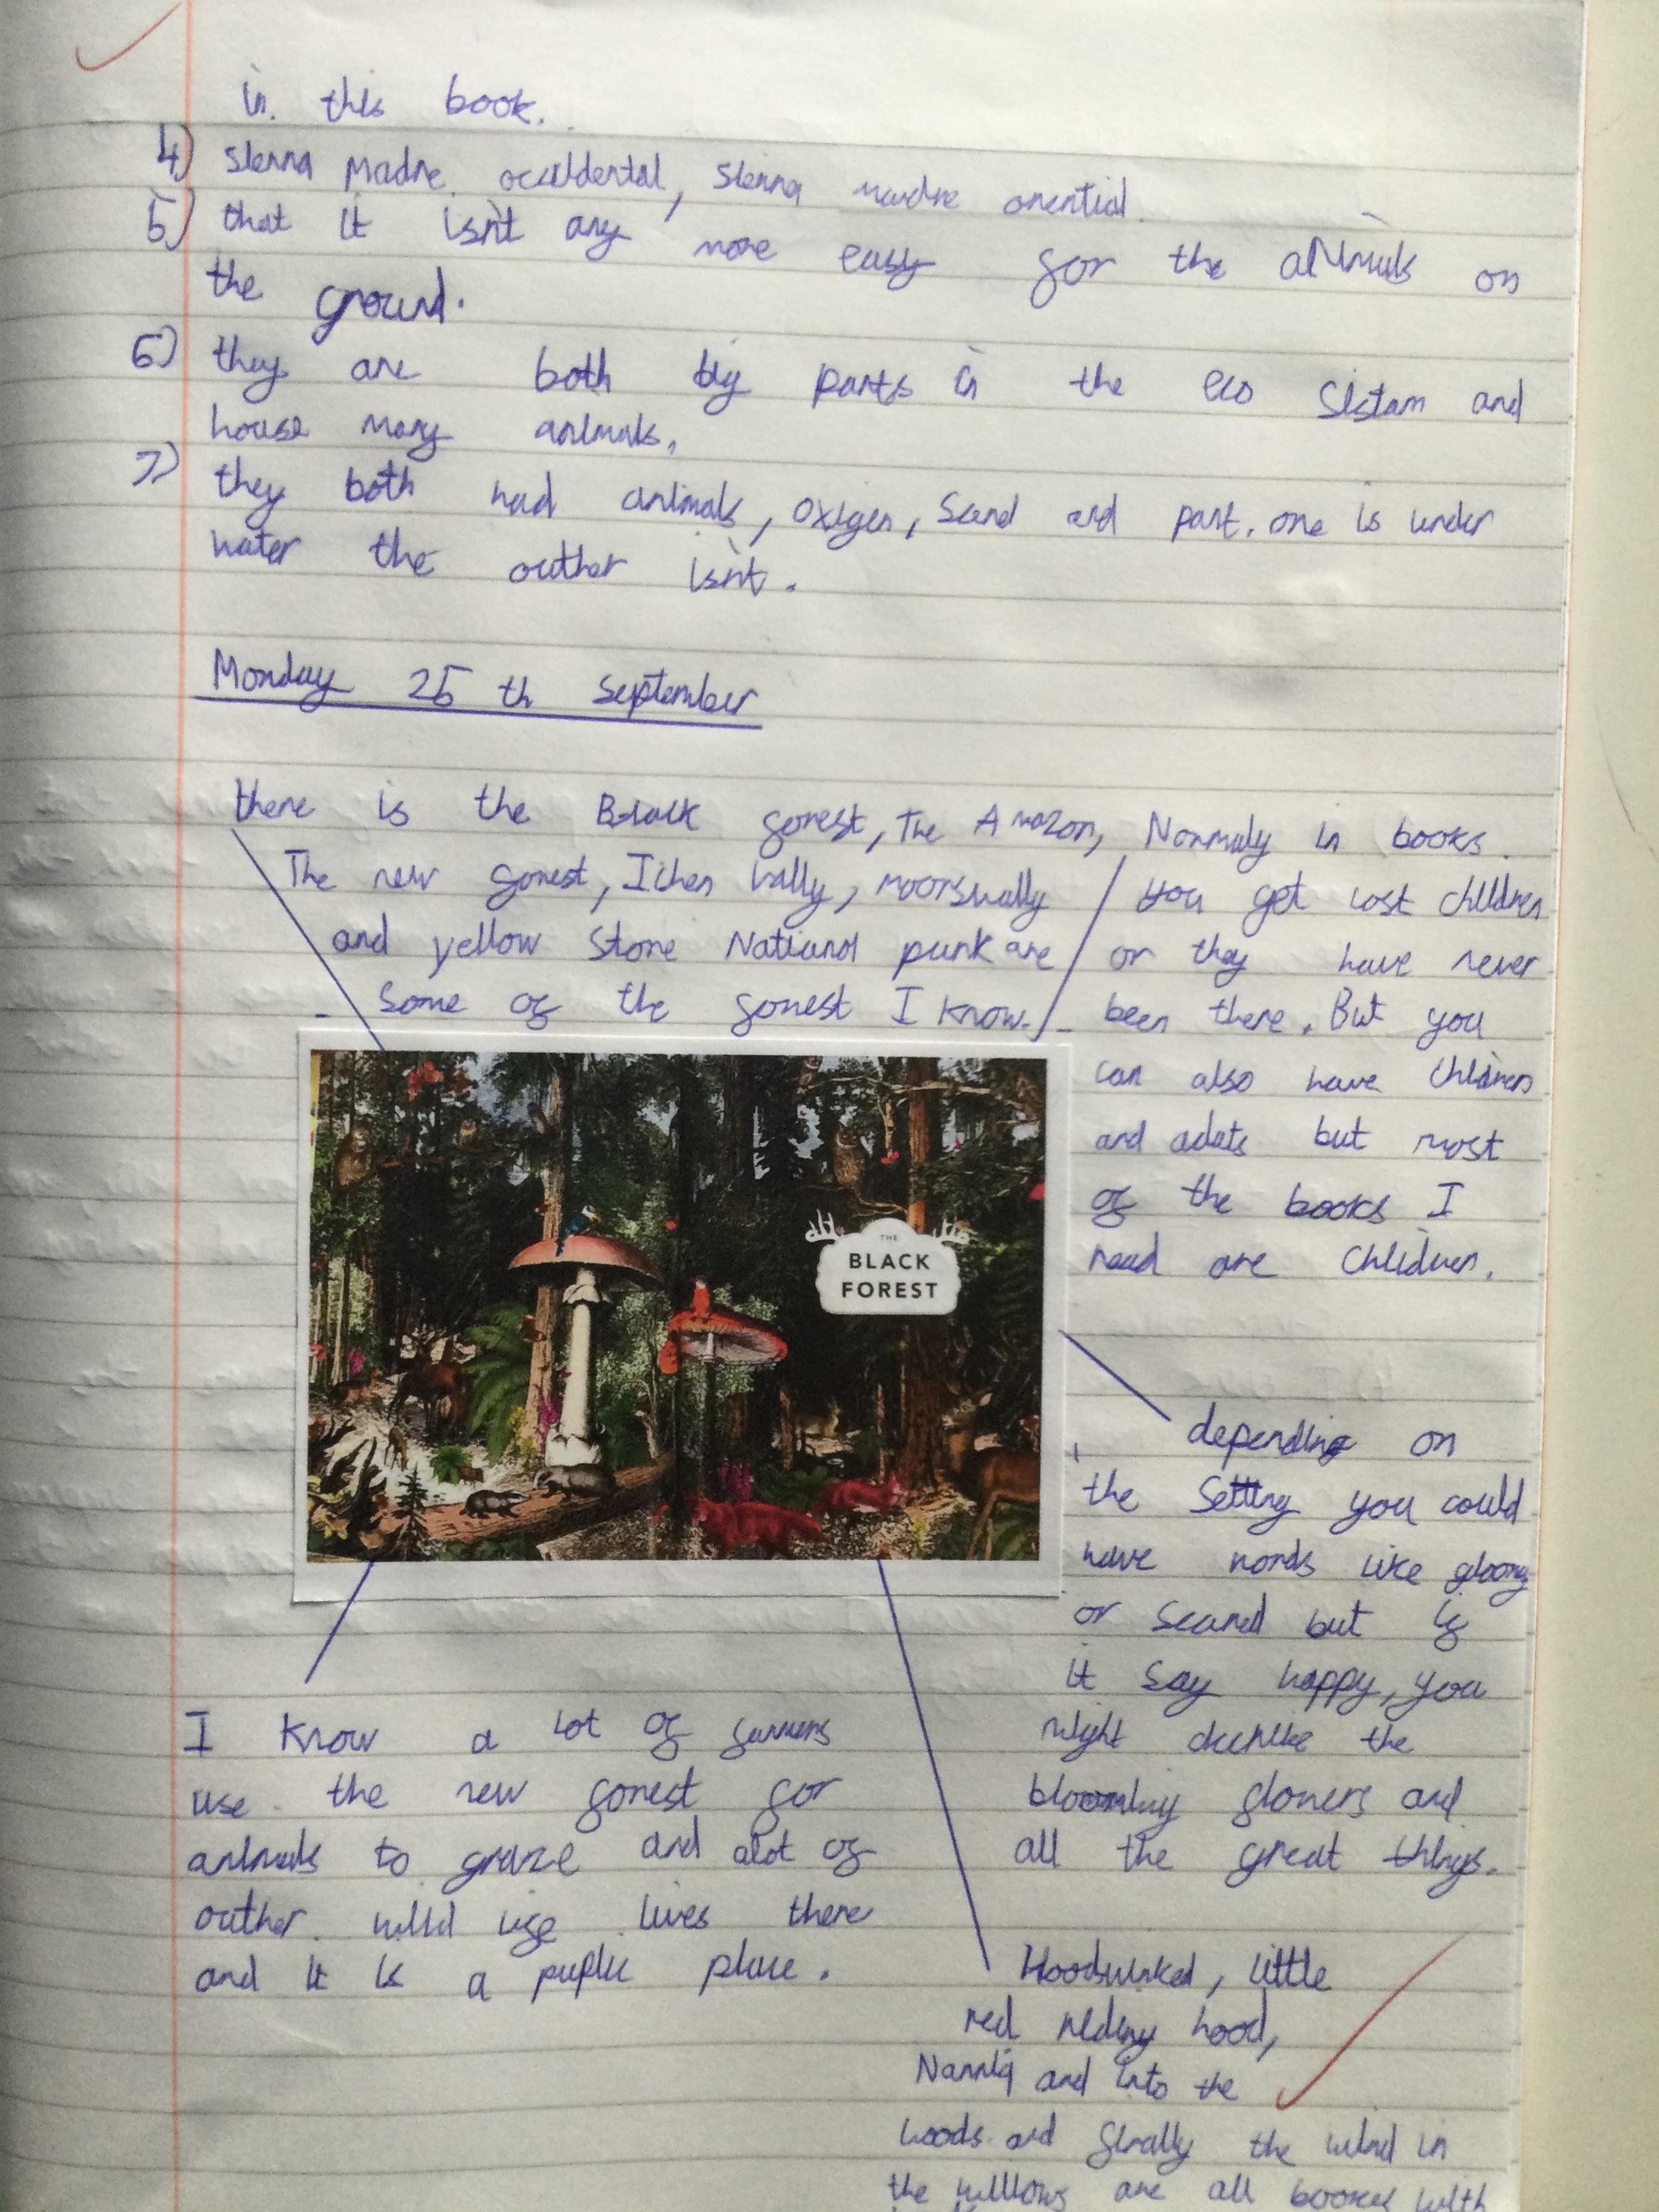 in this book.
4) sierra Madre occidental, sierra madre oriential.
5) that it isn't any more easy for the animals on
the ground.
6) they are both big parts in the eco sistam and
house many animals.
7) they both had animals, oxigen, sand and part. one is under
water the outher isn't.
Monday 25th September
there is the Black forest, The Amazon,
The new forest, Ichen vally, moorsvally
and yellow stone National park are
some of the forest I know.
Normaly in books
you get lost children
or they have never
been there. But you
can also have children
and adats but most
of the books I
read are children.
THE
BLACK
FOREST
depending on
the setting you could
have words like gloomy
or scared but if
it say happy, you
might the
blooming flowers and
all the great things.
I know a lot of farmers
use the new forest for
animals to graze and alot of
outher willd life lives there
and it is a puplic place.
Hoodwinked, little
red riding hood,
Narnia and into the
woods and finally the wind in
the willlows are all with